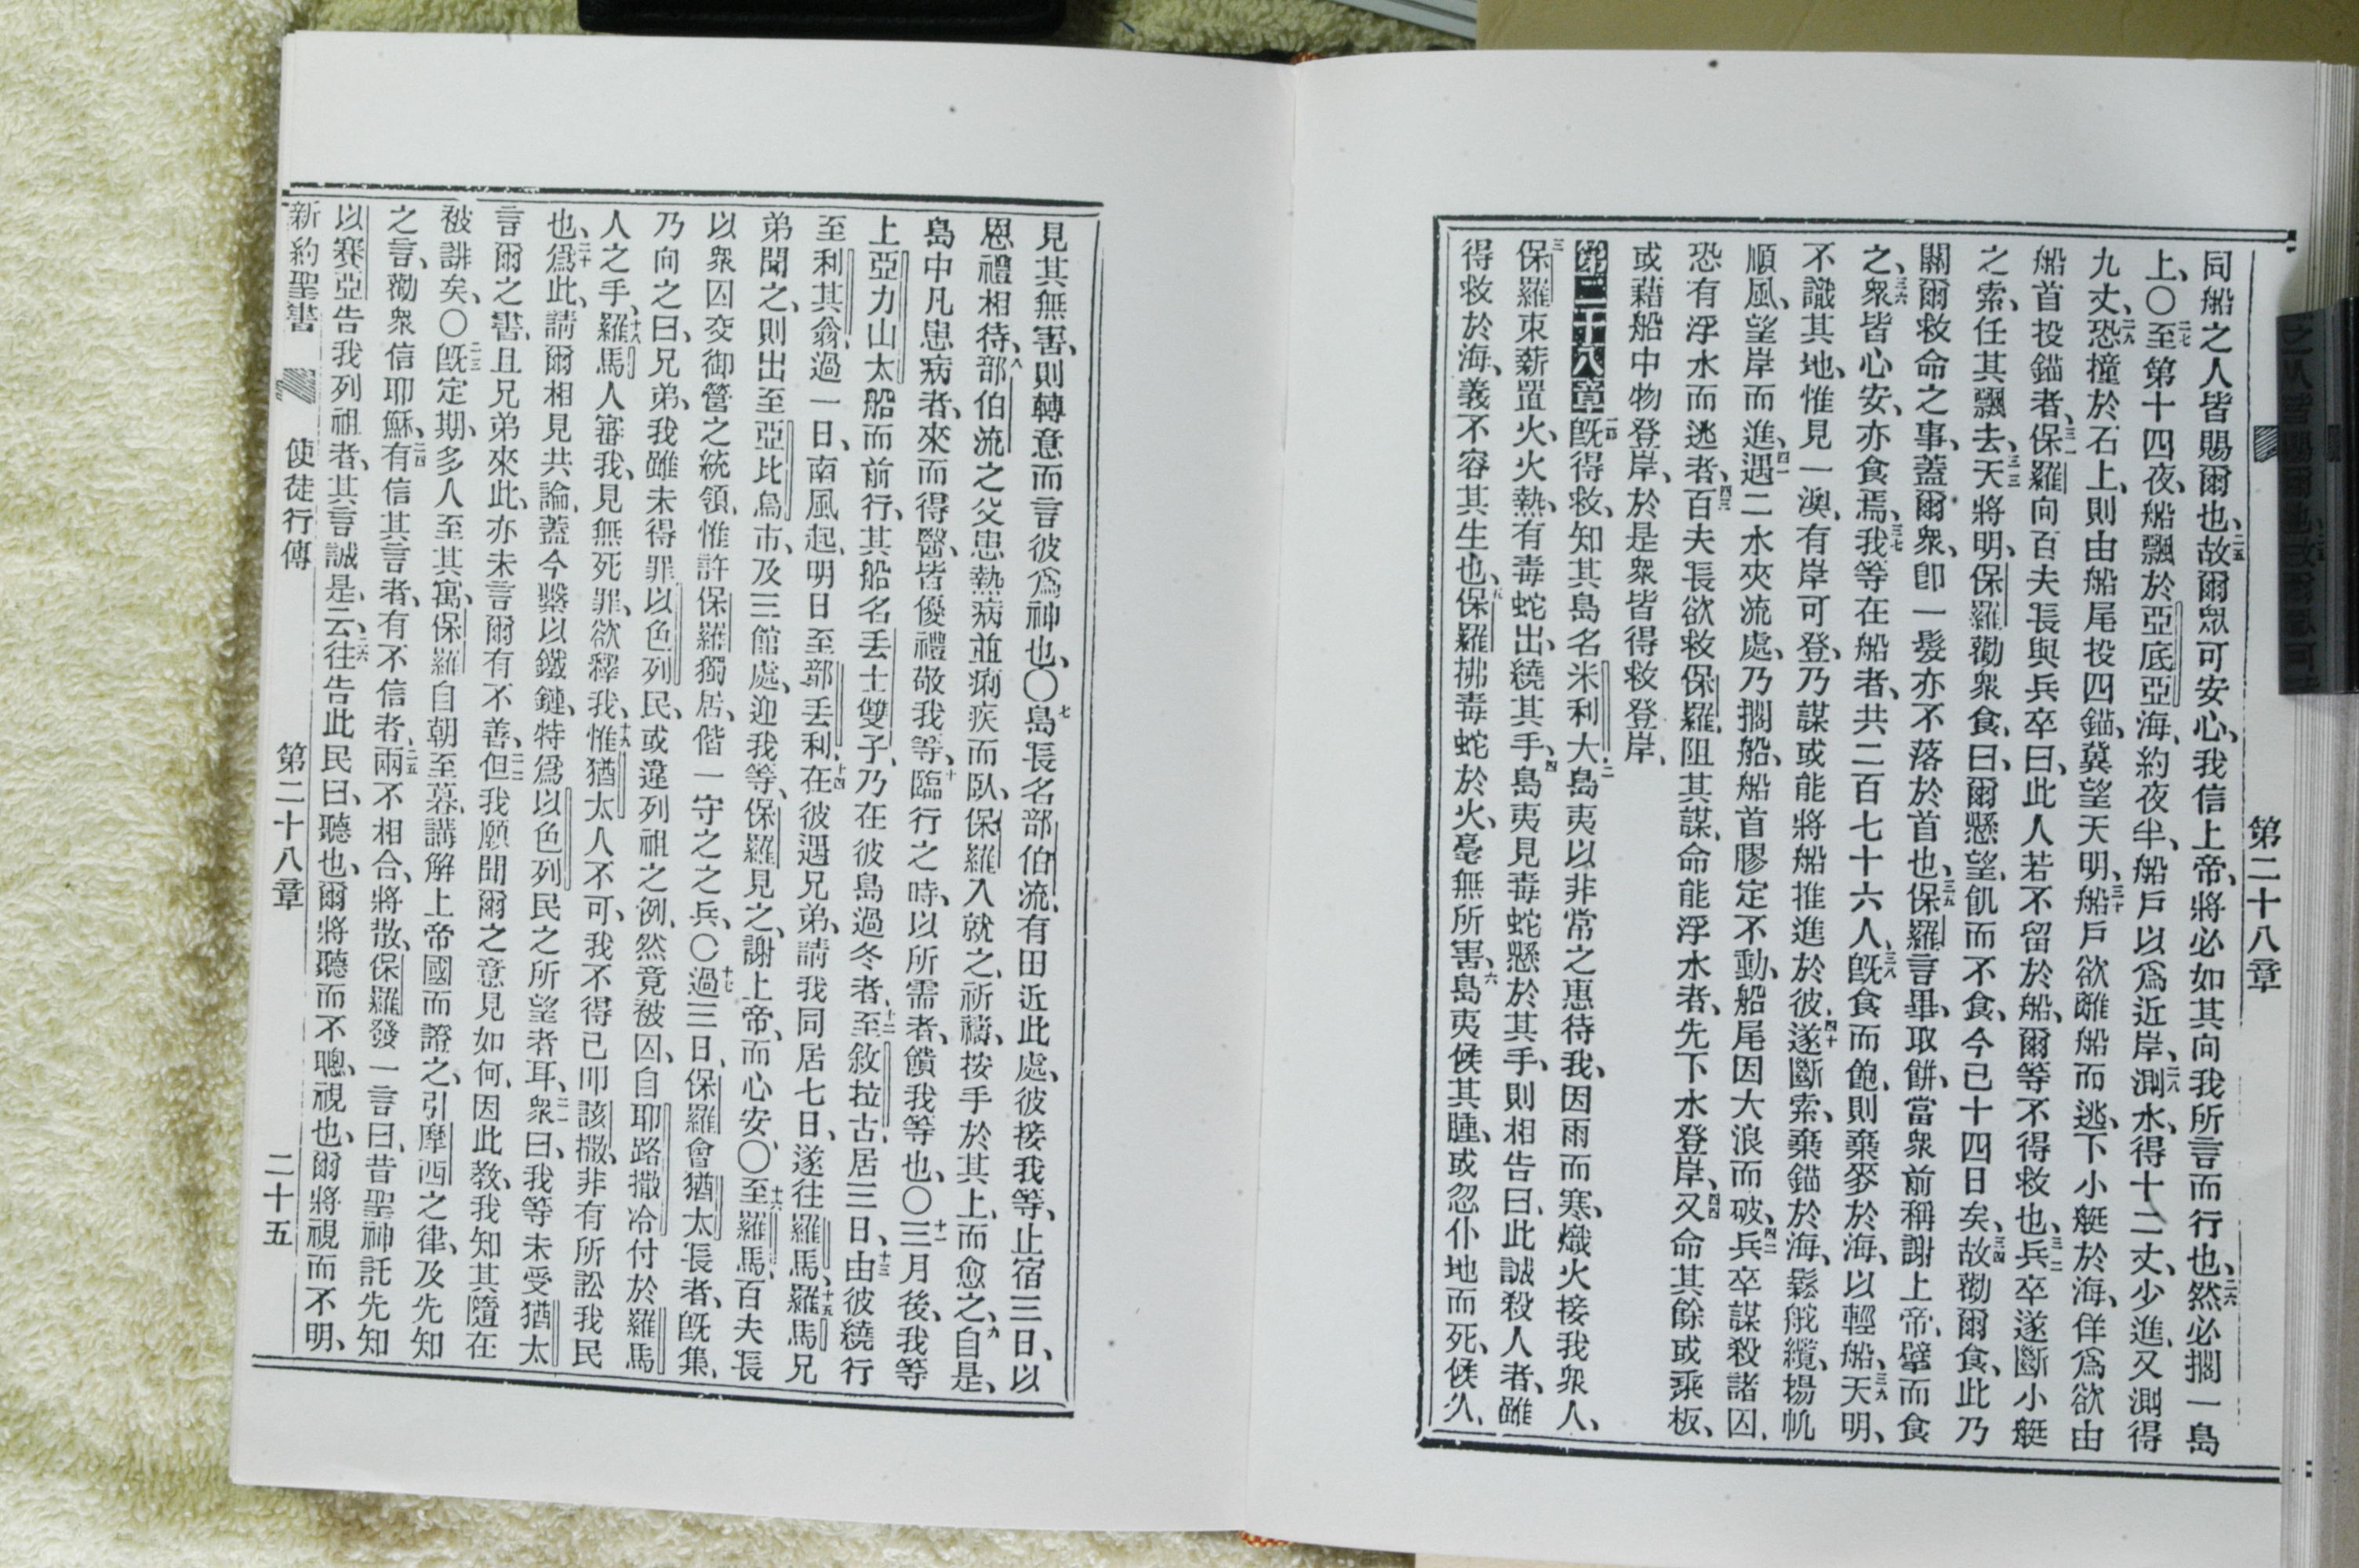 第二十八章
同船之人皆賜爾也、二五故爾眾可安心、我信上帝、將必如其向我所言而行也、二六然必擱一島
上、〇二七至第十四夜、船飄於亞底亞海、約夜半、船戶以爲近岸、二八測水、得十二丈、少進、又測得
九丈、二九恐撞於石上、則由船尾投四錨、冀望天明、三十船戶欲離船而逃、下小艇於海、佯爲欲由
船首投錨者、三一保羅向百夫長與兵卒曰、此人若不留於船、爾等不得救也、三二兵卒遂斷小艇
之索、任其飄去、三三天將明、保羅勸眾食、曰、爾懸望、飢而不食、今已十四日矣、三四故勸爾食、此乃
關爾救命之事、蓋爾眾、卽一髮亦不落於首也、三五保羅言畢、取餅、當眾前稱謝上帝、擘而食
之、三六眾皆心安、亦食焉、三七我等在船者、共二百七十六人、三八旣食而飽、則棄麥於海、以輕船、三九天明、
不識其地、惟見一澳、有岸可登、乃謀或能將船推進於彼、四十遂斷索、棄錨於海、鬆舵纜、揚帆
順風、望岸而進、四一遇二水夾流處、乃擱船、船首膠定不動、船尾因大浪而破、四二兵卒謀殺諸囚、
恐有浮水而逃者、四三百夫長欲救保羅、阻其謀、命能浮水者、先下水登岸、四四又命其餘或乘板、
或藉船中物登岸、於是眾皆得救登岸、
第二十八章 一節旣得救、知其島名米利大、二島夷以非常之惠待我、因雨而寒、熾火接我眾人、
三保羅束薪置火、火熱、有毒蛇出、繞其手、四島夷見毒蛇懸於其手、則相告曰、此誠殺人者、雖
得救於海、義不容其生也、五保羅拂毒蛇於火、毫無所害、六島夷候其腫、或忽仆地而死、候久、
見其無害、則轉意而言彼爲神也、〇七島長名部伯流、有田近此處、彼接我等、止宿三日、以
恩禮相待、八部伯流之父患熱病並痢疾而臥、保羅入就之、祈禱、按手於其上、而愈之、九自是、
島中凡患病者、來而得醫、皆優禮敬我等、十臨行之時、以所需者、饋我等也、〇十一三月後、我等
上亞力山太船而前行、其船名丟士雙子、乃在彼島過冬者、十二至敘拉古、居三日、十三由彼繞行
至利其翁、過一日、南風起、明日至部丟利、十四在彼遇兄弟、請我同居七日、遂往羅馬、十五羅馬兄
弟聞之、則出至亞比烏市、及三館處、迎我等、保羅見之、謝上帝、而心安、〇十六至羅馬、百夫長
以眾囚交御營之統領、惟許保羅獨居、偕一守之之兵、〇十七過三日、保羅會猶太長者、旣集、
乃向之曰、兄弟、我雖未得罪以色列民、或違列祖之例、然竟被囚、自耶路撒冷付於羅馬
人之手、十八羅馬人審我、見無死罪、欲釋我、十九惟猶太人不可、我不得已叩該撒、非有所訟我民
也、二十爲此、請爾相見共論、蓋今繫以鐵鏈、特爲以色列民之所望者耳、二一眾曰、我等未受猶太
言爾之書、且兄弟來此、亦未言爾有不善、二二但我願聞爾之意見如何、因此教、我知其隨在
被誹矣、〇二三旣定期、多人至其寓、保羅自朝至暮、講解上帝國而證之、引摩西之律、及先知
之言、勸眾信耶穌、二四有信其言者、有不信者、二五兩不相合、將散、保羅發一言曰、昔聖神託先知
以賽亞告我列祖者、其言誠是、云、二六往告此民曰、聽也、爾將聽而不聰、視也、爾將視而不明、
新約聖書 使徒行傳 第二十八章 二十五